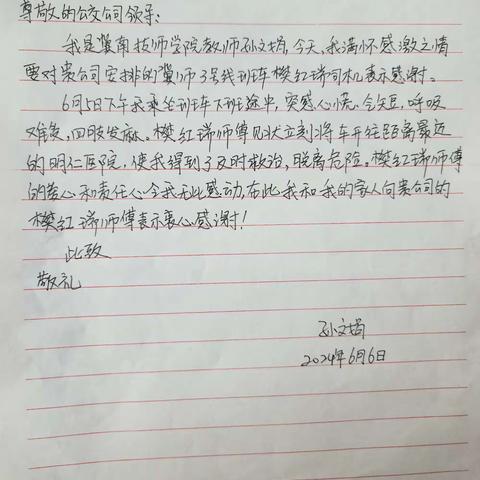 尊敬的公交公司领导:
我是冀南技师学院教师孙文娟,今天,我满怀感激之情
要对贵公司安排的冀师3号线班车樊红瑞司机表示感谢。
6月5日下午我乘坐班车下班途中,突感心慌、气短,呼吸
难受,四肢发麻。樊红瑞师傅见状立刻将车开往距离最近
的明仁医院,使我得到了及时救治,脱离危险。樊红瑞师傅
的爱心和责任心令我无比感动,在此我和我的家人向贵公司的
樊红瑞师傅表示衷心感谢!
此致
敬礼
孙文娟
2024年6月6日